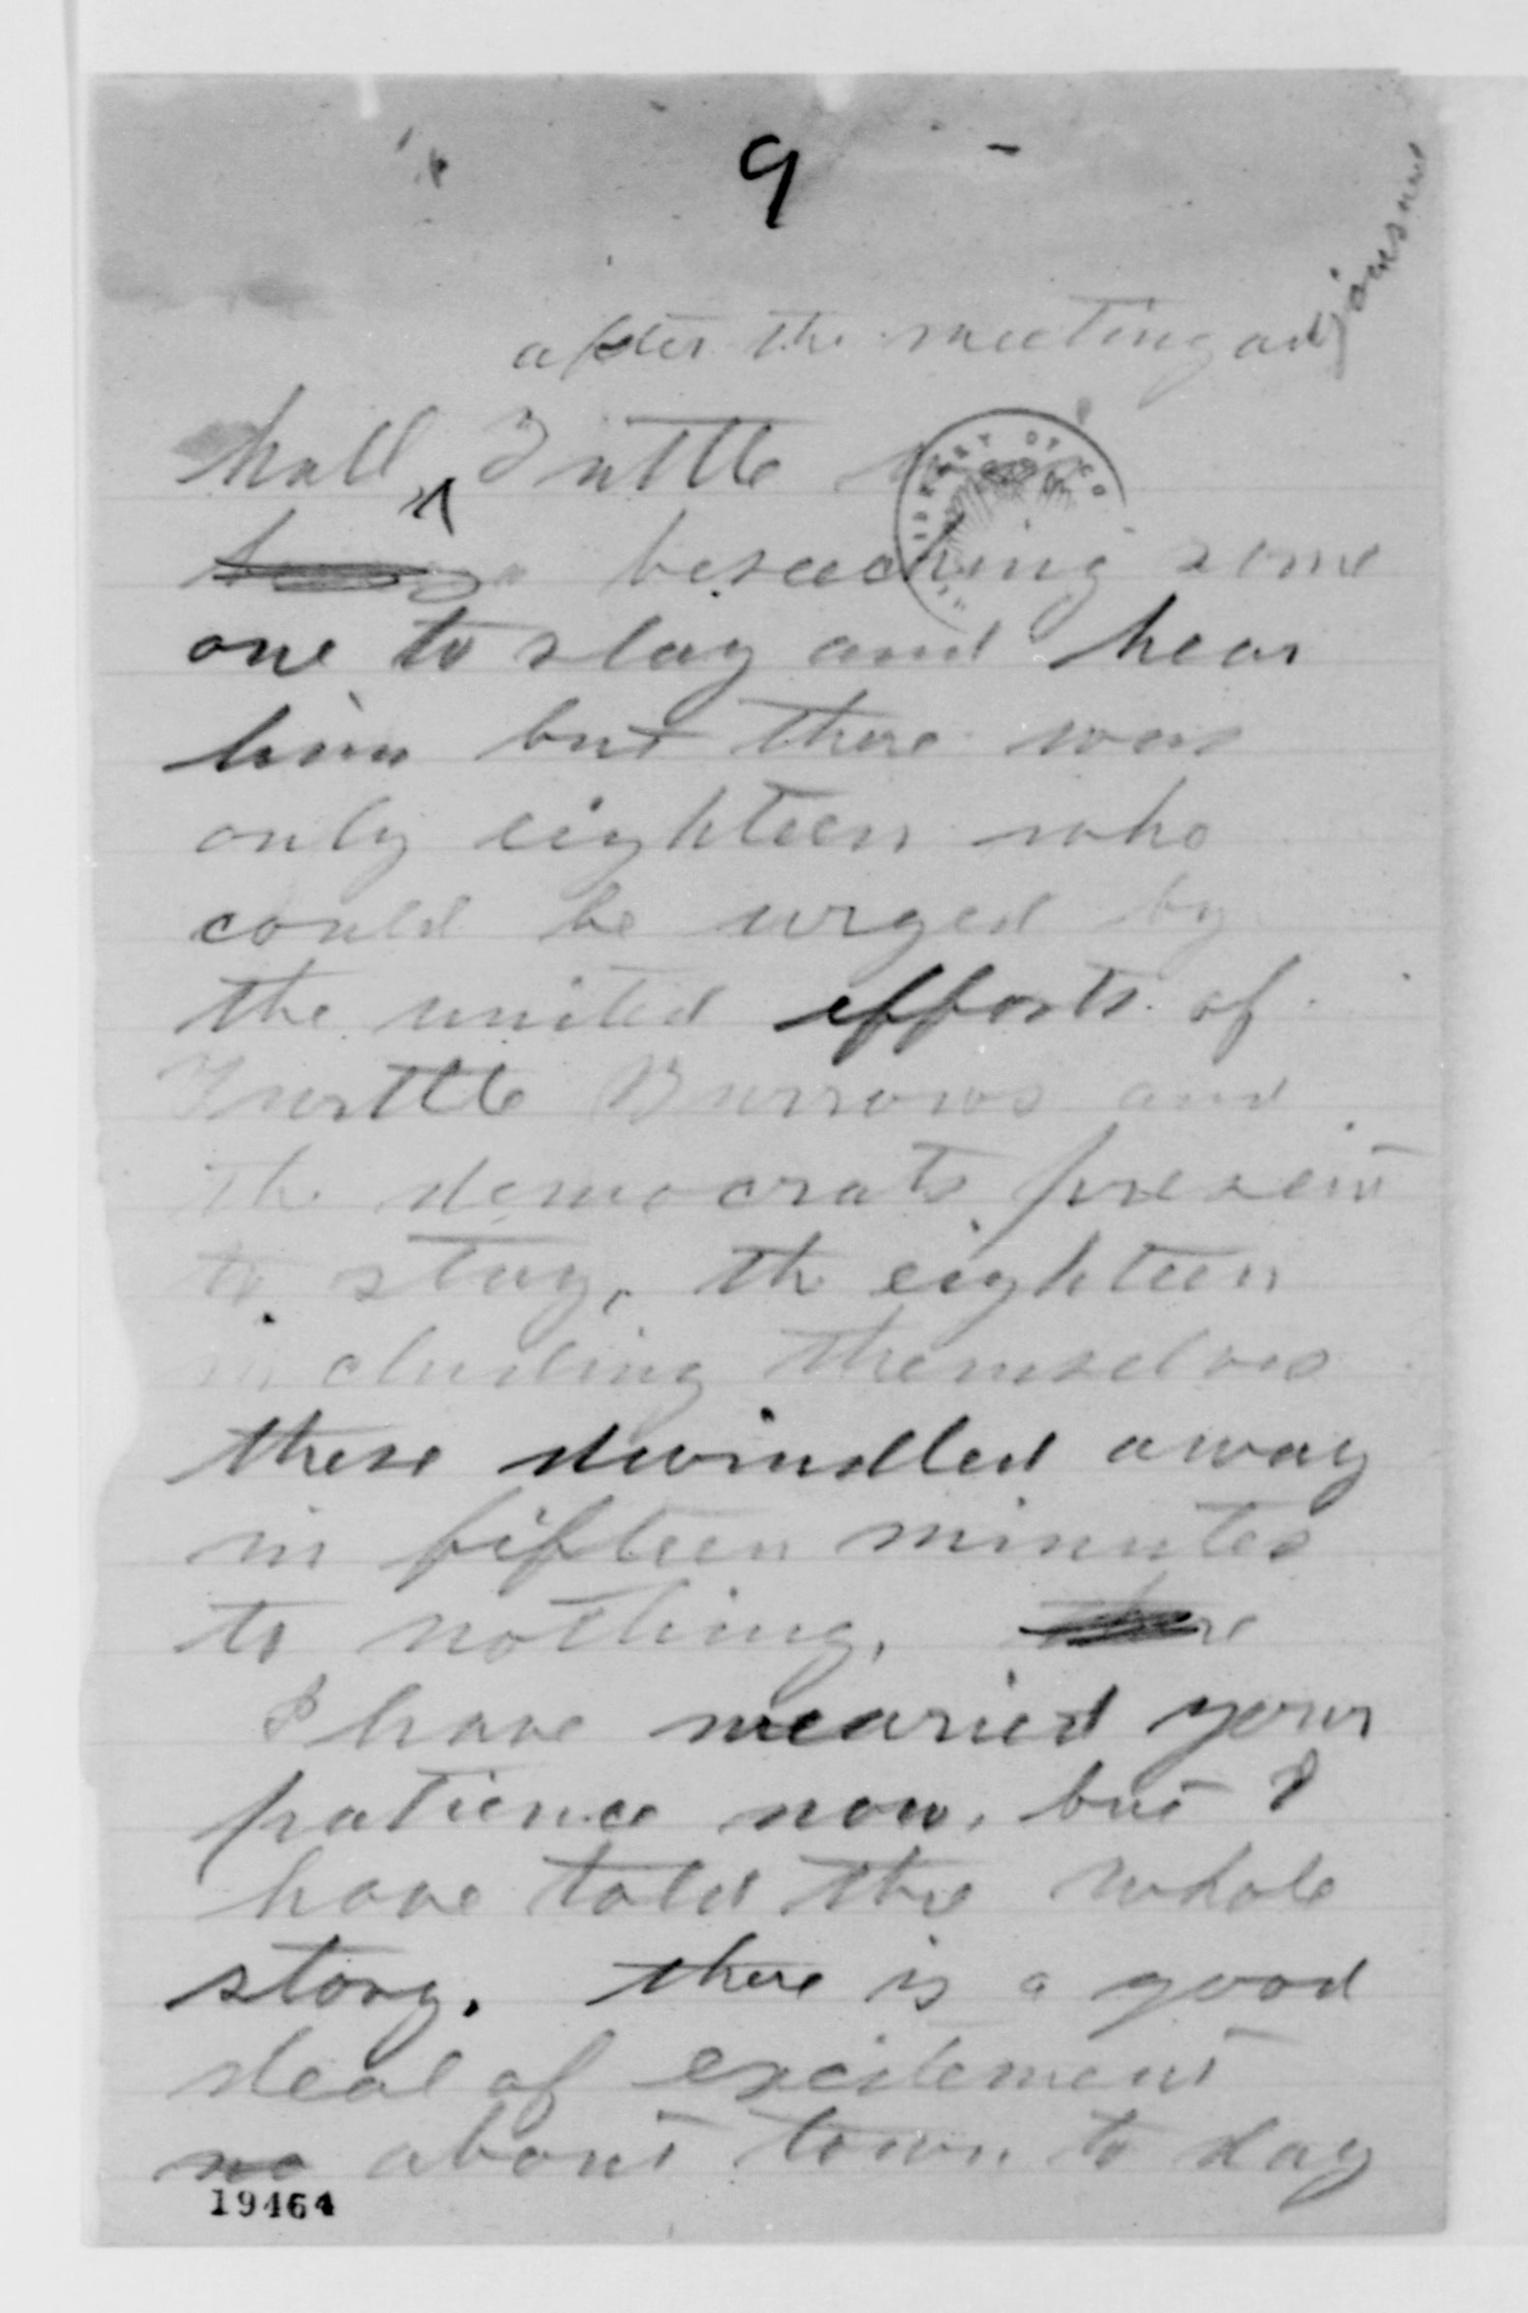 9
after the meeting adjourned
hall, ^ Tuttle
beseeching some
one to stay and hear
him but there was
only eighteen who
could be urged by
the united efforts of
Turttle Burrows and
the democrats present
to stay, the eighteen
including themselves
these dwindled away
in fifteen minutes
to nothing. there
I have wearied your
patience now, but I
have told the whole
story. there is a good
deal of excitement
no about town to day
19464